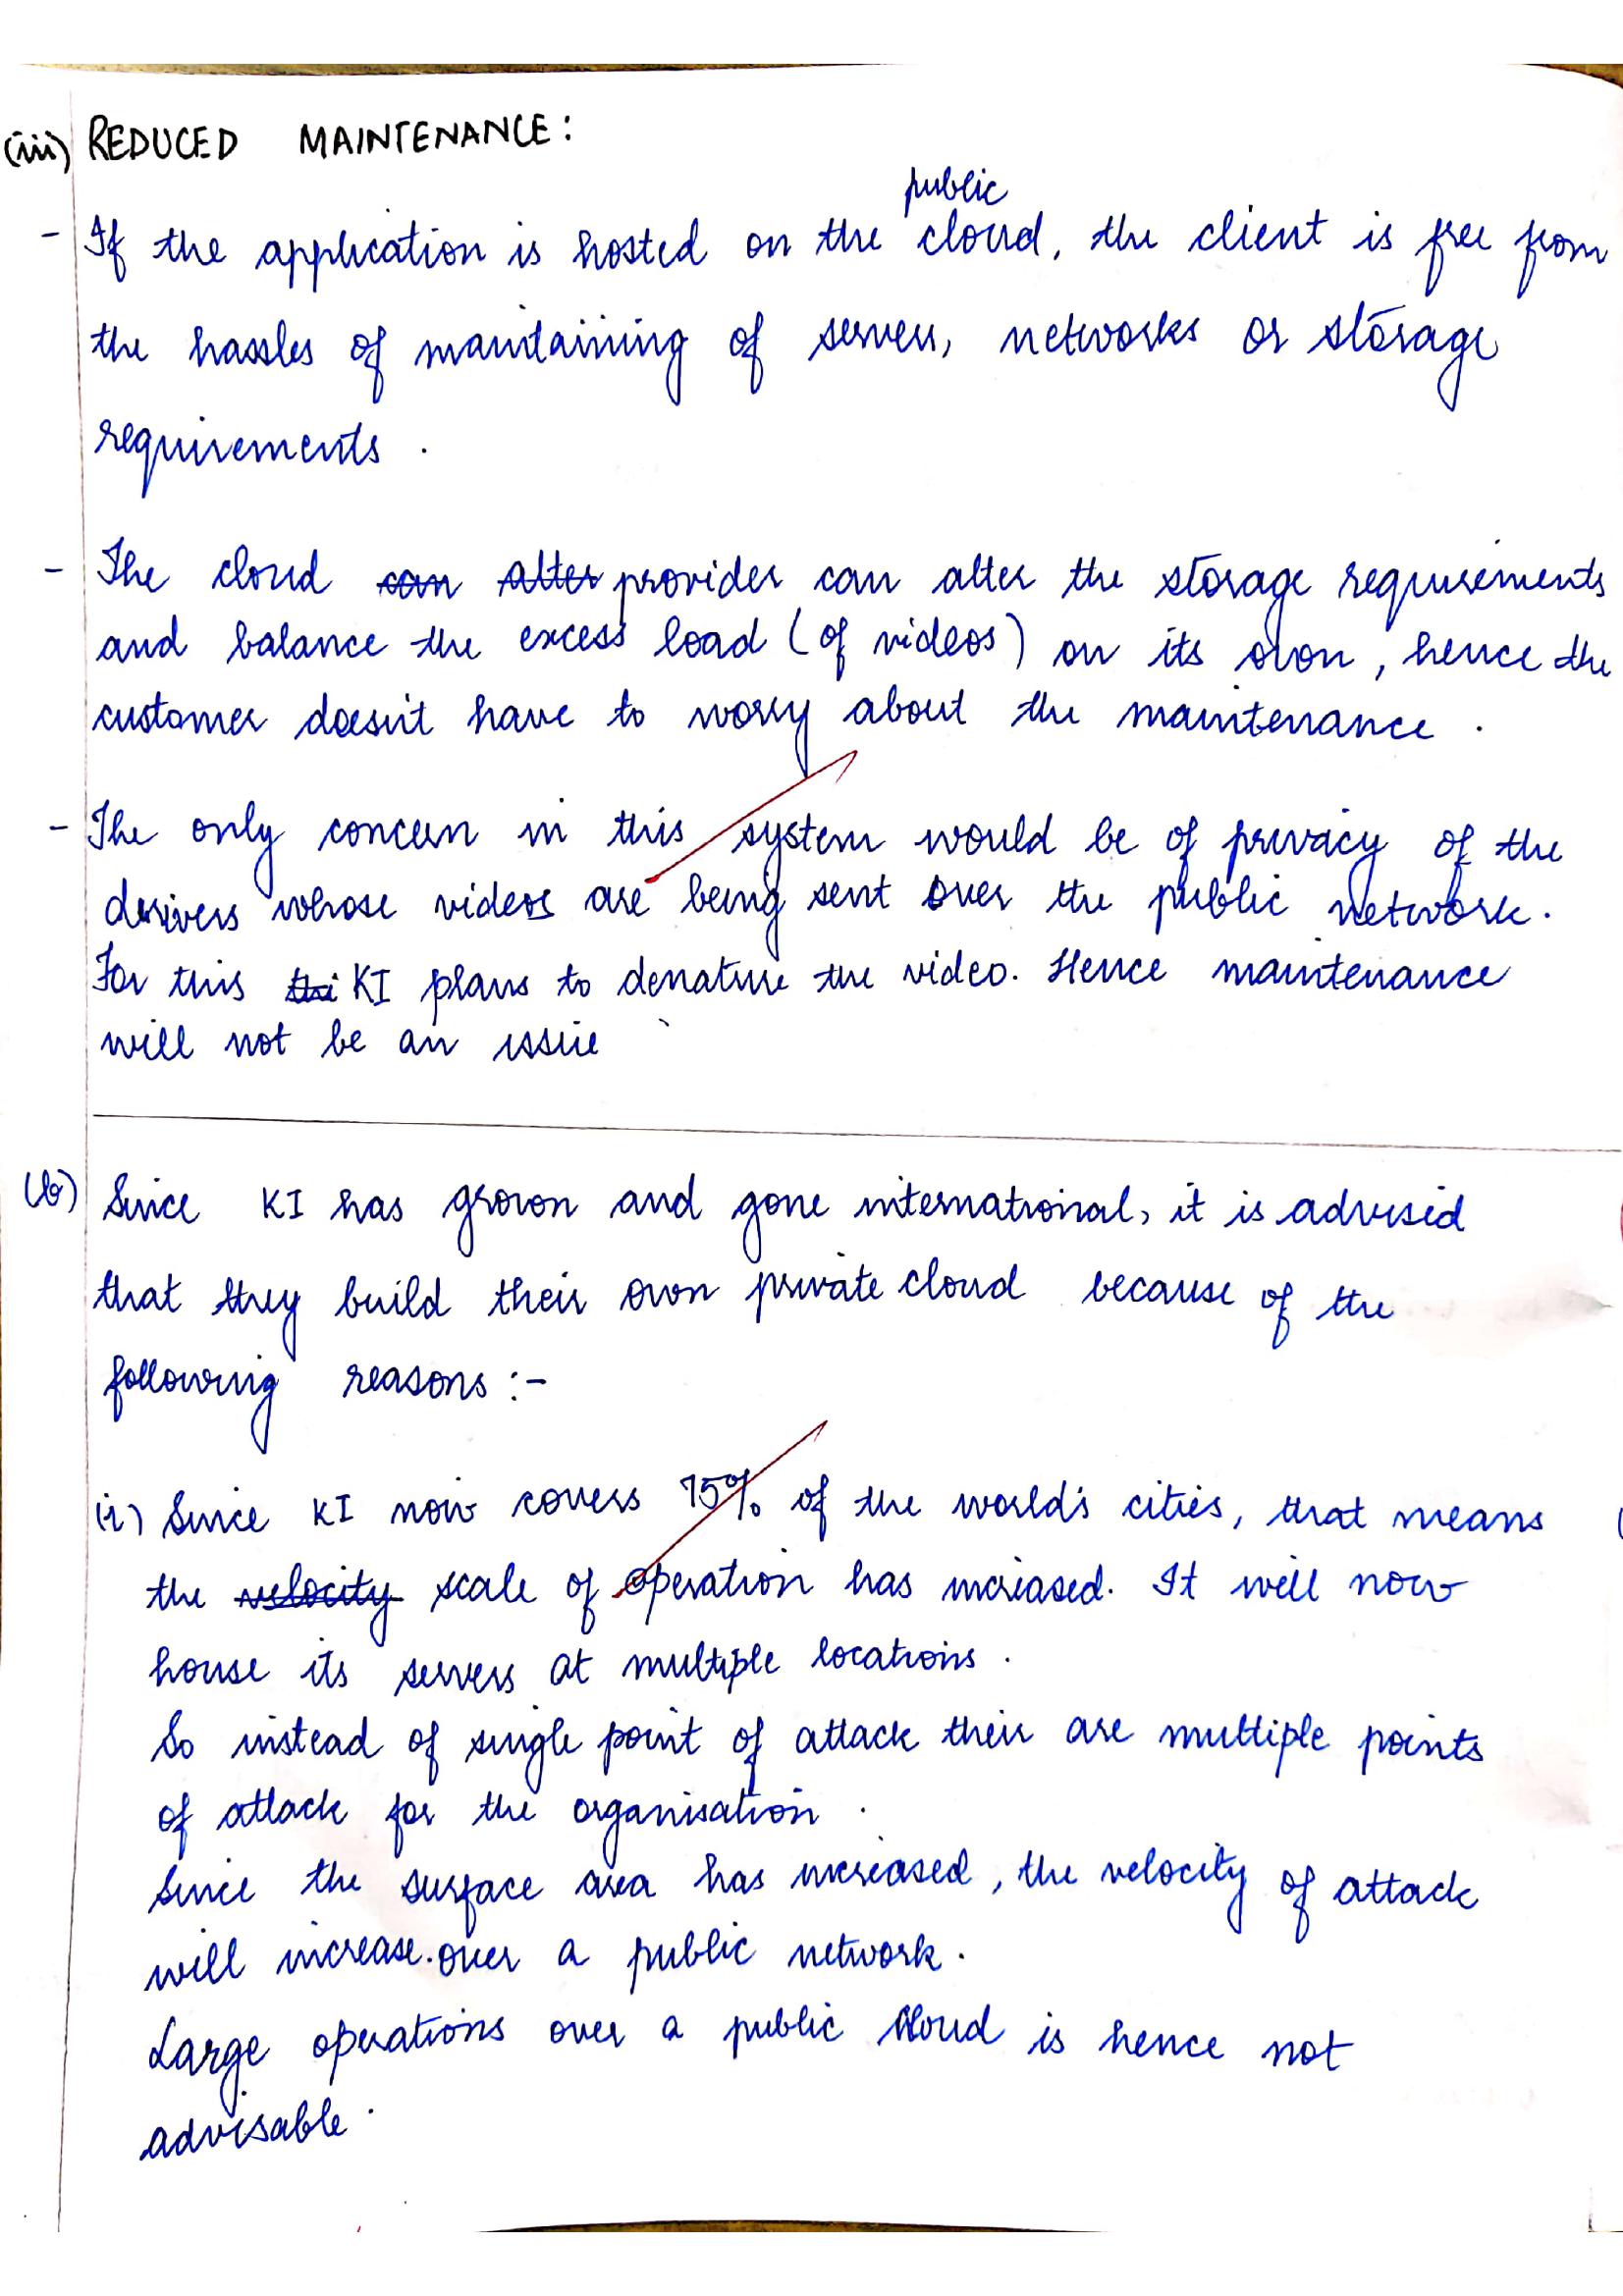 (iii) REDUCED MAINTENANCE:
public
- If the application is hosted on the cloud, the client is free from
the hassles of maintaining of servers, networks or storage
requirements.
- The cloud can alter provider can alter the storage requirements
and balance the excess load (of videos) on its own, hence the
customer doesn't have to worry about the maintenance.
- The only concern in this system would be of privacy of the
drivers whose videos are being sent over the public network.
For this thi KI plans to denature the video. Hence maintenance
will not be an issue
(b) Since KI has grown and gone international, it is advised
that they build their own private cloud because of the
following reasons:-
(i) Since KI now covers 75% of the world's cities, that means
the velocity scale of operation has increased. It will now
house its servers at multiple locations.
So instead of single point of attack their are multiple points
of attack for the organisation.
Since the surface area has increased, the velocity of attack
will increase. over a public network.
Large operations over a public cloud is hence not
advisable.